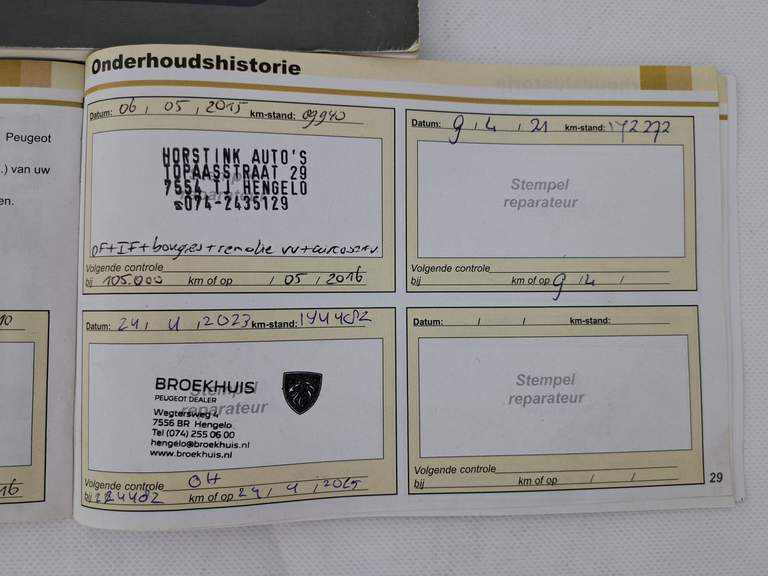 Onderhoudshistorie
Peugeot
.) van uw
en.
10
16
Datum: 06 / 05 / 2015 km-stand: 89940
HORSTINK AUTO'S
TOPAASSTRAAT 29
7554 TJ HENGELO
☎074-2435129
OF+IF+bougies+remolie vv+aircoserv.
Volgende controle
bij 105.000 km of op / 05 / 2016
Datum: 9 / 4 / 21 km-stand: 172272
Stempel
reparateur
Volgende controle
bij km of op 9 / 4 /
Datum: 24 / 4 / 2023 km-stand: 194482
Stempel
reparateur
BROEKHUIS
PEUGEOT DEALER
Wegtersweg 4
7556 BR Hengelo
Tel (074) 255 06 00
hengelo@broekhuis.nl
www.broekhuis.nl
Volgende controle OH
bij 224482 km of op 24 / 4 / 2025
Datum: / / km-stand:
Stempel
reparateur
Volgende controle
bij km of op / /
29